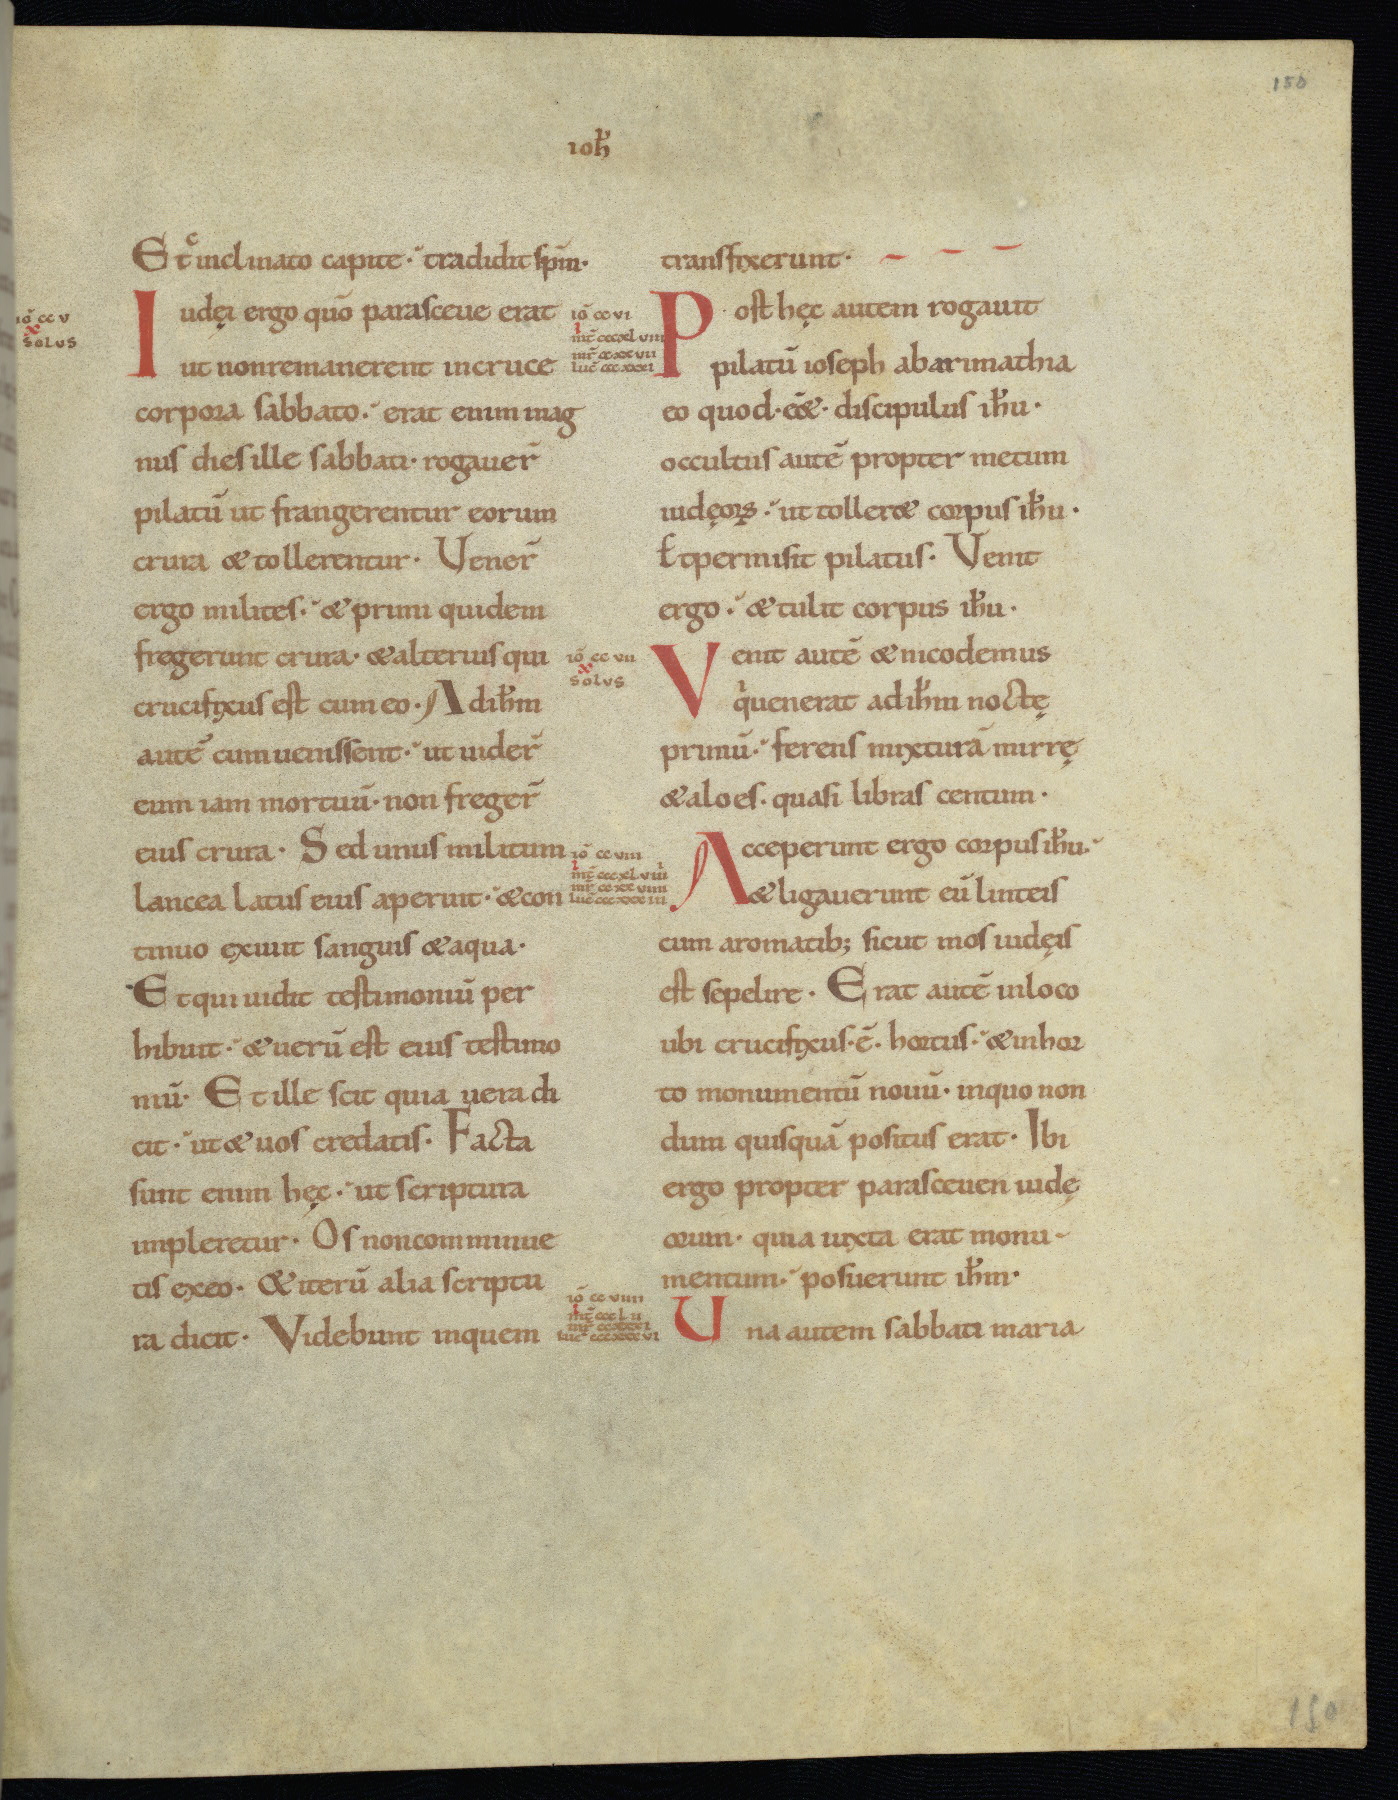 150
ioħ
Et inclinato capite· tradidit sp̄m·
Iudęi ergo quō parasceue erat
ut nonremanerent incruce
corpora sabbato· erat enim mag
nus dies ille sabbati· rogauer̄
pilatū ut frangerentur eorum
crura & tollerentur· Uener̄
ergo milites· & primi quidem
fregerunt crura· & alterius qui
crucifixus est cum eo· Ad ih̄m
autē cum uenissent· ut uider̄
eum iam mortuū· non freger̄
eius crura· Sed unus militum
lancea latus eius aperuit· & con
tinuo exiuit sanguis & aqua·
Et qui uidit testimoniū per
hibuit· & uerū est eius testimo
niū· Et ille scit quia uera di
cit· ut & uos credatis· Facta
sunt enim hęc· ut scriptura
impleretur· Os non comminue
tis exeo· & iterū alia scriptu
ra dicit· Videbunt inquem
iō cc v
x
solus
iō cc vi
i
iō cc vii
x
solus
iō cc viii
i
iō cc viiii
i
transfixerunt·
Post hęc autem rogauit
pilatū ioseph abarimathia
eo quod· eēt· discipulus ih̄u·
occultus autē propter metum
iudęoꝝ· ut toller& corpus ih̄u·
Et permisit pilatus· Venit
ergo· & tulit corpus ih̄u·
Venit autē & nicodemus
q̇ uenerat ad ih̄m noctę
primū· ferens mixturā mirrę
& aloes· quasi libras centum·
Acceperunt ergo corpus ih̄u·
& ligauerunt eū linteis
cum aromatib; sicut mos iudęis
est sepelire· Erat autē inloco
ubi crucifixus· ē· hortus· & inhor
to monumentū nouū· inquo non
dum quisquā positus erat· Ibi
ergo propter parasceuen iudę
orum· quia iuxta erat monu-
mentum· posuerunt ih̄m·
Una autem sabbati maria
150